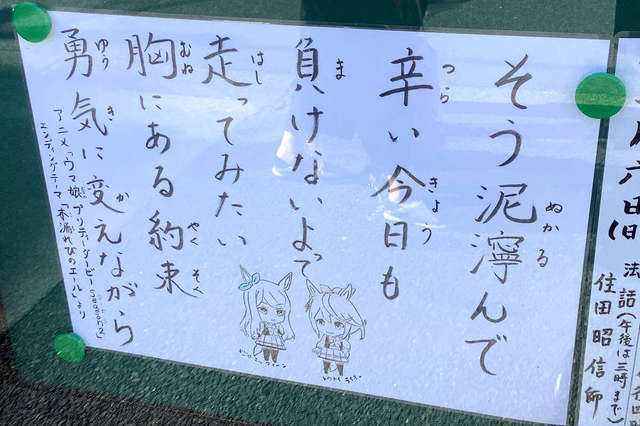 そう泥濘んで
ぬかる
辛い今日も
つら
きょう
負けないよって
ま
走ってみたい
はし
胸にある約束
むね
やくそく
勇気に変えながら
ゆう
き
か
アニメ「ウマ娘 プリティーダービー Season2」
エンディングテーマ「木漏れ日のエール」より
六日(日
法話(午後は三時まで)
住田昭信師